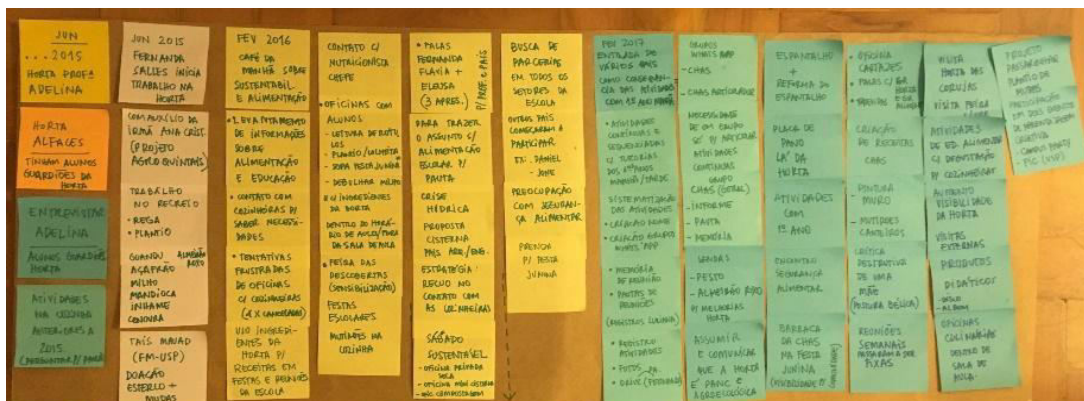 JUN
... 2015
HORTA PROFª
ADELINA
HORTA
ALFACES
TINHAM ALUNOS
GUARDIÕES DA
HORTA
ENTREVISTAR
ADELINA
ALUNOS GUARDIÕES
HORTA
ATIVIDADES
NA COZINHA
ANTERIORES A
2015
JUN 2015
FERNANDA
SALLES INICIA
TRABALHO NA
HORTA
COM AUXÍLIO DA
IRMÃ ANA CRIST.
(PROJETO
AGROQUINTAIS)
TRABALHO
NO RECREIO
• REGA
• PLANTIO
GUANDU ALMEIRÃO ROXO
AÇAFRÃO
MILHO
MANDIOCA
INHAME
CENOURA
TAÍS MAUAD
(FM-USP)
DOAÇÃO
ESTERCO +
MUDAS
FEV 2016
CAFÉ DA
MANHÃ SOBRE
SUSTENTABIL.
E ALIMENTAÇÃO
• LEVANTAMENTO
DE INFORMAÇÕES
SOBRE
ALIMENTAÇÃO
E EDUCAÇÃO
• CONTATO COM
COZINHEIRAS P/
SABER NECESSI-
DADES
• TENTATIVAS
FRUSTRADAS
DE OFICINAS
C/ COZINHEIRAS
(2 X CANCELADAS)
USO INGREDI-
ENTES DA
HORTA P/
RECEITAS EM
FESTAS E REUNIÕES
DA ESCOLA
CONTATO C/
NUTRICIONISTA
CHEFE
• OFICINAS COM
ALUNOS
- LEITURA DE RÓTU-
LOS
- PLANTIO/COLHEITA
- SOPA FESTA JUNINA
- DEBULHAR MILHO
C/ INGREDIENTES
DA HORTA
DENTRO DO HORÁ-
RIO DE AULA/FORA
DA SALA DE AULA
• FEIRA DAS
DESCOBERTAS
(SENSIBILIZAÇÃO)
FESTAS
ESCOLARES
MUTIRÕES NA
COZINHA
• FALAS
FERNANDA
FLAVIA +
ELOISA
(3 APRES.)
P/ PROF. E PAIS
PARA TRAZER
O ASSUNTO C/
ALIMENTAÇÃO
ESCOLAR P/
PAUTA
CRISE
HÍDRICA
PROPOSTA
CISTERNA
PAIS ARQ/ENG.
ESTRATÉGIA:
RECUO NO
CONTATO COM
AS COZINHEIRAS
SÁBADO
SUSTENTÁVEL
• OFICINA MINI CISTERNA
• OFIC COMPOSTAGEM
BUSCA DE
PARCERIAS
EM TODOS OS
SETORES DA
ESCOLA
OUTROS PAIS
COMEÇARAM A
PARTICIPAR
EX: - DANIEL
PREOCUPAÇÃO
COM SEGURAN-
ÇA ALIMENTAR
PRENDA
P/ FESTA
JUNINA
FEV 2017
ENTRADA DE
VÁRIOS PAIS
COMO CONSEQUÊN-
CIA DAS ATIVIDADES
• ATIVIDADES
CONTÍNUAS E
SEQUENCIADAS
C/ TUTORIAS
MANHÃ/TARDE
SISTEMATIZAÇÃO
DAS ATIVIDADES
• CRIAÇÃO NOME
• CRIAÇÃO GRUPOS
WHATS APP
• MEMÓRIA
DE REUNIÃO
• PAUTAS DE
REUNIÕES
• REGISTRO
ATIVIDADES
• FOTOS
• DRIVE (FERNANDA)
GRUPOS
WHATSAPP
- CHAS
- CHAS ARTICULADOR
NECESSIDADE
DE UM GRUPO
SÓ P/ ARTICULAR
ATIVIDADES
CONTÍNUAS
GRUPO
CHAS (GERAL)
- INFORME
- PAUTA
- MEMÓRIA
VENDAS
- PESTO
- ALMEIRÃO ROXO
P/ MELHORIAS
HORTA
ASSUMIR
E COMUNICAR
QUE A HORTA
É PANC E
AGROECOLÓGICA
ESPANTALHO
+
REFORMA DO
ESPANTALHO
PLACA DE
PANO
LÁ DA
HORTA
ATIVIDADES
COM
1º ANO
ENCONTRO
SEGURANÇA
ALIMENTAR
BARRACA
DA CHAS
NA FESTA
JUNINA
• OFICINA
CARTAZES
CRIAÇÃO
DE RECEITAS
CHAS
- PINTURA
MURO
- MUTIRÕES
CANTEIROS
CRÍTICA
DESTRUTIVA
DE UMA
MÃE
(POSTURA BÉLICA)
REUNIÕES
SEMANAIS
PASSARAM A SER
FIXAS
VISITA
HORTA DAS
CORUJAS
VISITA FEIRA
ATIVIDADES
DE ED. ALIMENTAR
C/ DEGUSTAÇÃO
P/ COZINHEIRAS
AUMENTO
VISIBILIDADE
DA HORTA
VISITAS
EXTERNAS
PRODUTOS
DIDÁTICOS
OFICINAS
CULINÁRIAS
DENTRO DE
SALA DE
AULA
PROJETO
PLANTIO DE
MUDAS
PARTICIPAÇÃO
EM DOIS EVENTOS
- CAMPUS PARTY